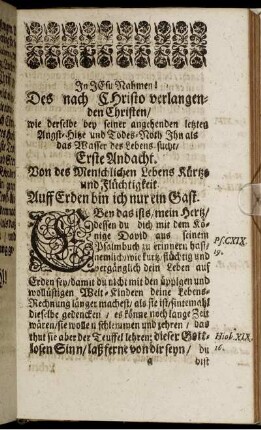 In JEsu Nahmen!
Des nach CHristo verlangen-
den Christen/
wie derselbe bey seiner angehenden letzten
Angst-Hitze und Todes-Noth Ihn als
das Wasser des Lebens suchet/
Erste Andacht.
Von des Menschlichen Lebens Kürtze
und Flüchtigkeit
Auff Erden bin ich nur ein Gast.
Eben das ists, mein Hertz/
dessen du dich mit dem Kö-
nige David aus seinem
Psalmbuch zu erinnern hast/
nemlich/wie kurtz, flüchtig und
vergänglich dein Leben auf
Erden sey/damit du nicht mit den üppigen und
wollüstigen Welt-Kindern deine Lebens-
Rechnung länger machest/ als sie ist/sintemahl
dieselbe gedencken/ es könne noch lange Zeit
wären/sie wollen schlemmen und zehren/ das
thut sie aber der Teuffel lehren; dieser Gott-
losen Sinn/ laß ferne von dir seyn/ du
a bist
Ps.CXIX.
19.
Hiob.XIX.
26.